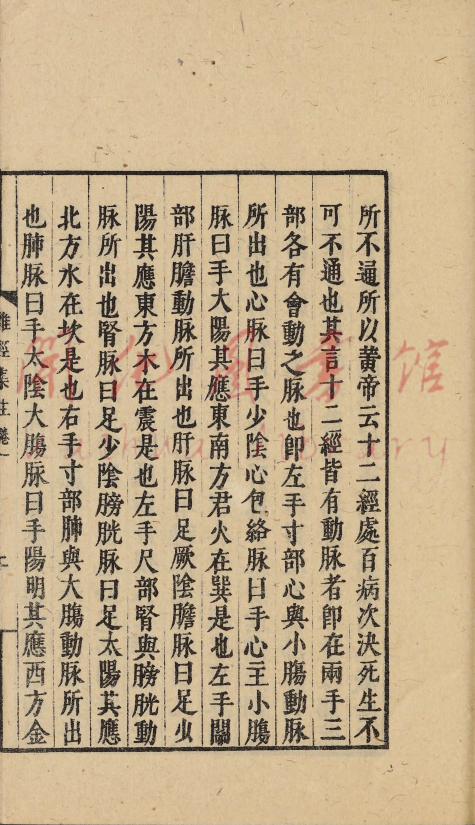 所不通所以黄帝云十二經處百病次決死生不
可不通也其言十二經皆有動脉者卽在兩手三
部各有會動之脉也卽左手寸部心與小膓動脉
所出也心脉曰手少陰心包絡脉曰手心主小膓
脉曰手大陽其應東南方君火在巽是也左手關
部肝膽動脉所出也肝脉曰足厥陰膽脉曰足少
陽其應東方木在震是也左手尺部腎與膀胱動
脉所出也腎脉曰足少陰膀胱脉曰足太陽其應
北方水在坎是也右手寸部肺與大膓動脉所出
也肺脉曰手太陰大膓脉曰手陽明其應西方金
難經集註卷一
館
library